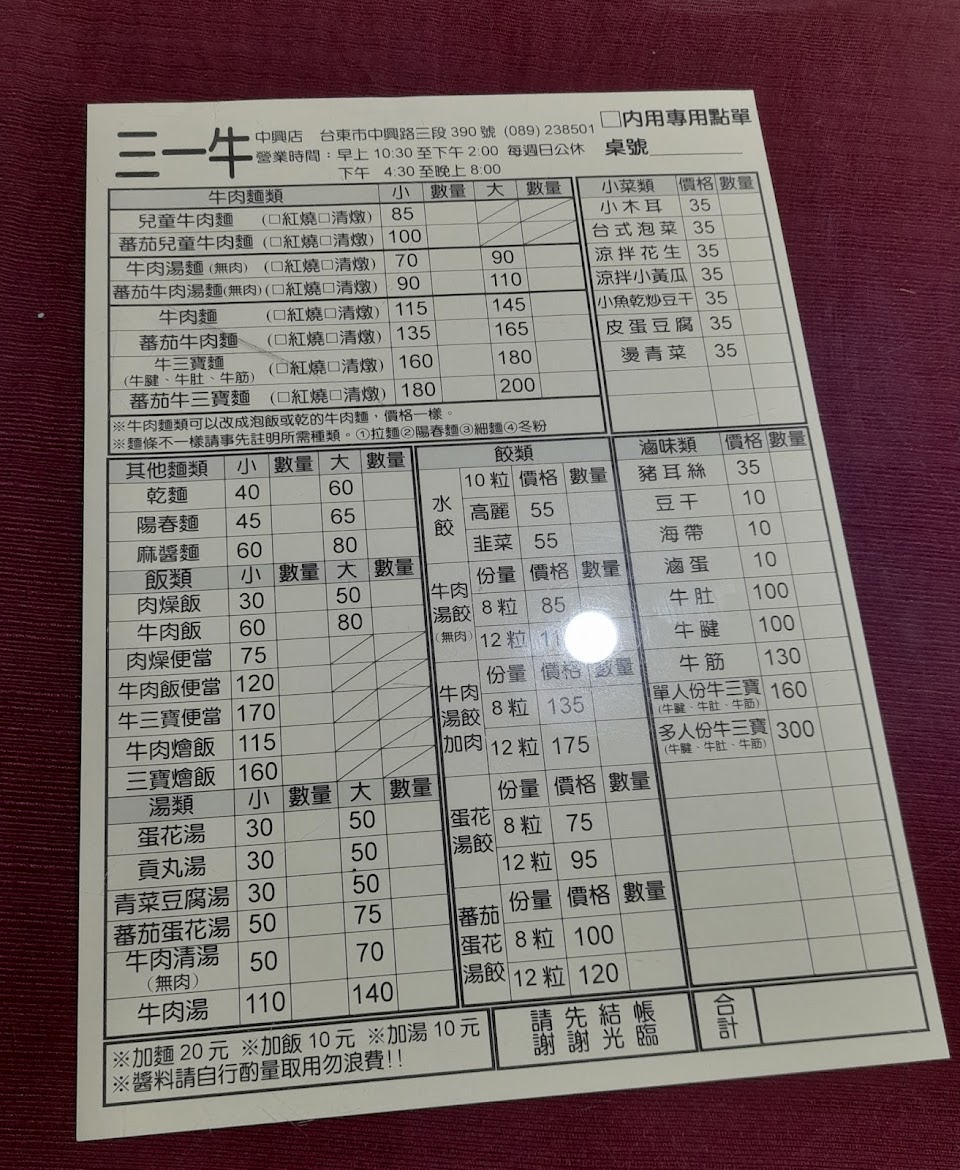 三一牛
中興店 台東市中興路三段390號 (089) 238501
營業時間：早上 10:30 至下午 2:00 每週日公休
下午 4:30 至晚上 8:00
□內用專用點單
桌號
牛肉麵類 小 數量 大 數量
兒童牛肉麵 (□紅燒□清燉) 85
蕃茄兒童牛肉麵 (□紅燒□清燉) 100
牛肉湯麵(無肉) (□紅燒□清燉) 70 90
蕃茄牛肉湯麵(無肉) (□紅燒□清燉) 90 110
牛肉麵 (□紅燒□清燉) 115 145
蕃茄牛肉麵 (□紅燒□清燉) 135 165
牛三寶麵 (□紅燒□清燉) 160 180
(牛腱、牛肚、牛筋)
蕃茄牛三寶麵 (□紅燒□清燉) 180 200
※牛肉麵類可以改成泡飯或乾的牛肉麵，價格一樣。
※麵條不一樣請事先註明所需種類。①拉麵②陽春麵③細麵④冬粉
小菜類 價格 數量
小木耳 35
台式泡菜 35
涼拌花生 35
涼拌小黃瓜 35
小魚乾炒豆干 35
皮蛋豆腐 35
燙青菜 35
其他麵類 小 數量 大 數量
乾麵 40 60
陽春麵 45 65
麻醬麵 60 80
飯類 小 數量 大 數量
肉燥飯 30 50
牛肉飯 60 80
肉燥便當 75
牛肉飯便當 120
牛三寶便當 170
牛肉燴飯 115
三寶燴飯 160
湯類 小 數量 大 數量
蛋花湯 30 50
貢丸湯 30 50
青菜豆腐湯 30 50
蕃茄蛋花湯 50 75
牛肉清湯 50 70
(無肉)
牛肉湯 110 140
餃類
水餃 10粒 價格 數量
高麗 55
韭菜 55
牛肉湯餃(無肉) 份量 價格 數量
8粒 85
12粒
牛肉湯餃加肉 份量 價格 數量
8粒 135
12粒 175
蛋花湯餃 份量 價格 數量
8粒 75
12粒 95
蕃茄蛋花湯餃 份量 價格 數量
8粒 100
12粒 120
滷味類 價格 數量
豬耳絲 35
豆干 10
海帶 10
滷蛋 10
牛肚 100
牛腱 100
牛筋 130
單人份牛三寶 160
(牛腱、牛肚、牛筋)
多人份牛三寶 300
(牛腱、牛肚、牛筋)
※加麵20元 ※加飯10元 ※加湯10元
※醬料請自行酌量取用勿浪費!!
請先結帳
謝謝光臨
合計